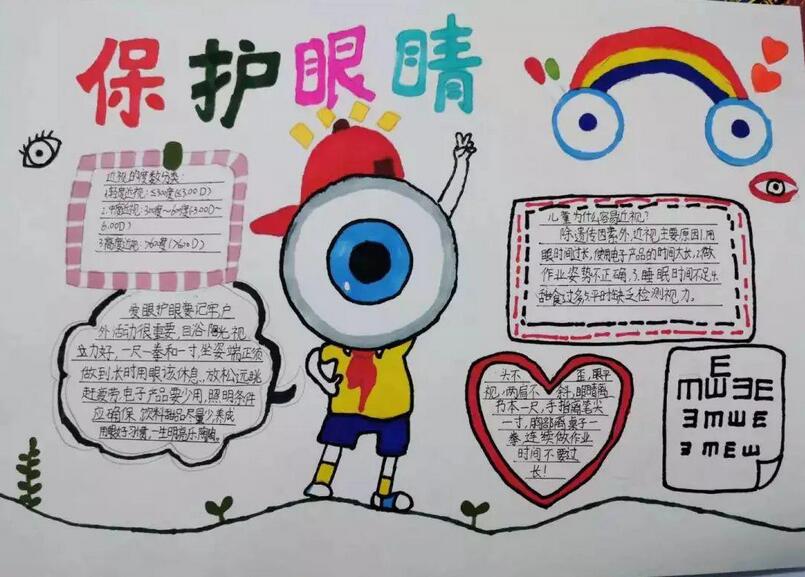 保护眼睛
近视的度数分类:
1.轻度近视:≤300度(≤3.00D)
2.中度近视:300度~600度(3.00D~
6.00D)
3.高度近视:>600度(>6.00D)
爱眼护眼要记牢户
外活动很重要,日浴阳光视
立力好,一尺一拳和一寸,坐姿端正须
做到长时用眼该休息,放松远眺
赶疲劳,电子产品要少用,照明条件
应确保、饮料甜品尽量少,养成
用眼好习惯,一生明亮乐陶陶。
儿童为什么容易近视?
除遗传因素外,近视主要原因1.用
眼时间过长,使用电子产品的时间太长,2.做
作业姿势不正确,3.睡眠时间不足4.
甜食过多5.平时缺乏检测视力。
头不歪,眼平
视,两肩不斜,眼睛离
书本一尺,手指离笔尖
一寸,胸部离桌子一
拳,连续做作业
时间不要过
长!
E
E
E